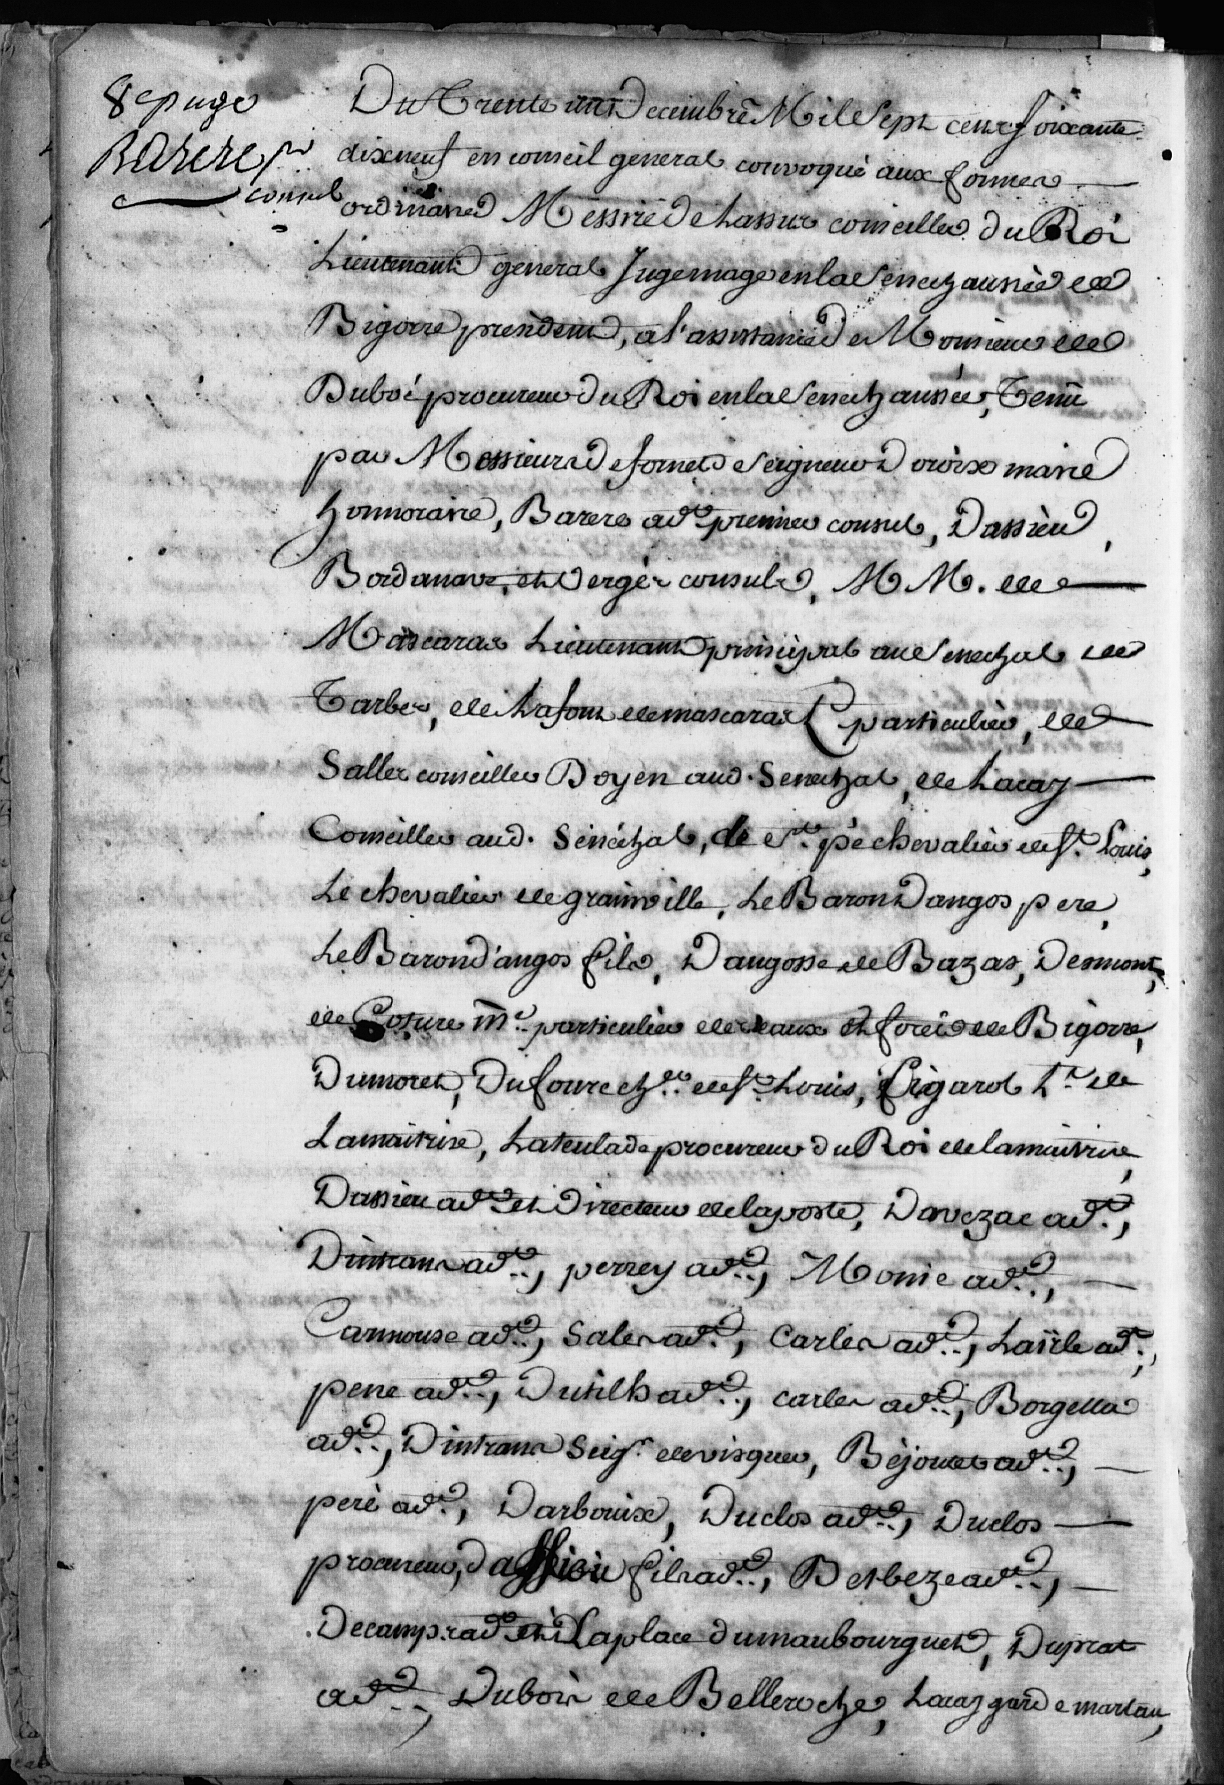 8e page
Barere pr
consul
Du Trente un Decembre Mil Sept cent soixante
dixneuf en conseil general convoqué aux formes
ordinaires Messire de Lassus conseiller du Roi
Lieutenant general Jugemage en la Senechaussée de
Bigorre president, a l'assistance de Monsieur de
Duboé procureur du Roi en la Senechaussée, Tenu
par Messieurs de fornets Seigneur D'oroix maire
honnoraire, Barere adt. premier consul, Dassieu,
Bordanave, et Vergés consuls, M M. de
Mascaras Lieutenant principal au Senechal de
Tarbes, de Lafont de mascaras L particulier, de
Salles conseiller Doyen aud. Senechal, de Lacay
Conseiller aud. Sénéchal, de St. pé chevalier de St. Louis,
Le chevalier de grainville, Le Baron Dangos pere,
Le Baron d'angos fils, Daugosse de Bazas, Desmont,
de Coture me. particulier des eaux et forets de Bigorre,
Dumoret, Dufourc chr. de St. Louis, figarol Lt. de
Lamaitrise, Lateulade procureur du Roi de lamaitrise,
Dassieu adt. et Directeur de la poste, Davezac adt.,
Dintrans adt., perrey adt., Monie adt.,
Cannouse adt., Sales adt., Carles adt., Lasserle adt.,
pene adt., Dutilh adt., carles adt., Borgella
adt., Dintrans Seigr. de visquer, Béjouet adt.,
peré adt., Darbouix, Duclos adt., Duclos
procureur, dassieu fils adt., Desbeze adt.,
Decamps adt. et Laplace dumaubourguet, Duprat
adt., Dubois de Belleroche, Lacay garde marteau,